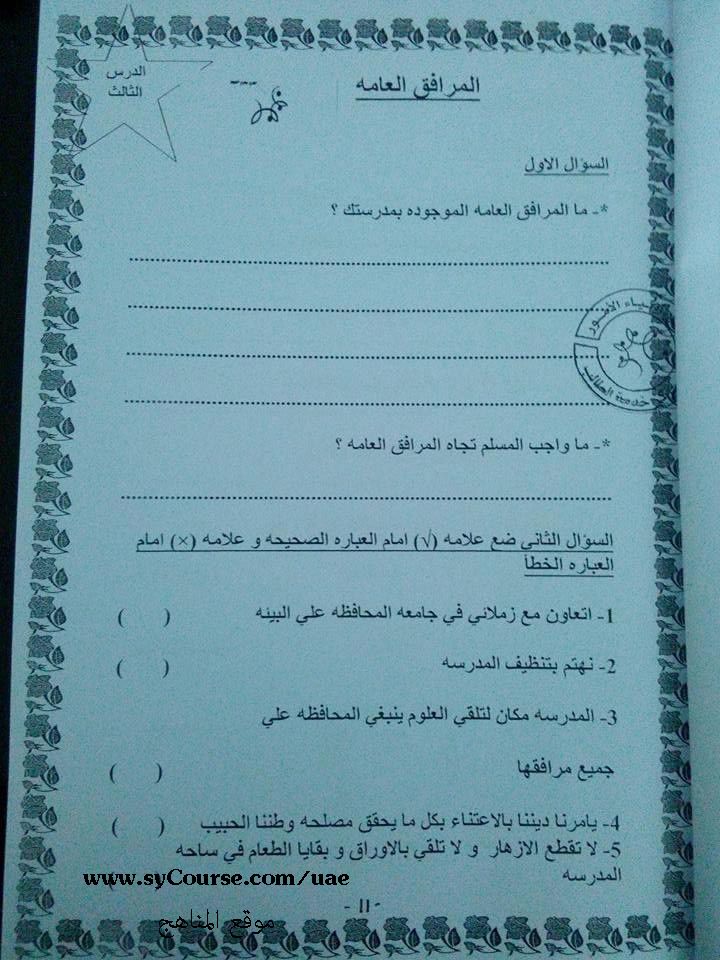 الدرس
الثالث
المرافق العامه
السؤال الاول
*- ما المرافق العامه الموجوده بمدرستك ؟
*- ما واجب المسلم تجاه المرافق العامه ؟
السؤال الثاني ضع علامه (√) امام العباره الصحيحه و علامه (×) امام
العباره الخطأ
1- اتعاون مع زملائي في جامعه المحافظه علي البيئه ( )
2- نهتم بتنظيف المدرسه ( )
3- المدرسه مكان لتلقي العلوم ينبغي المحافظه علي
جميع مرافقها ( )
4- يامرنا ديننا بالاعتناء بكل ما يحقق مصلحه وطننا الحبيب ( )
5- لا تقطع الازهار و لا تلقي بالاوراق و بقايا الطعام في ساحه
المدرسه
www.syCourse.com/uae
- 11 -
موقع المناهج
خدمة الطالب